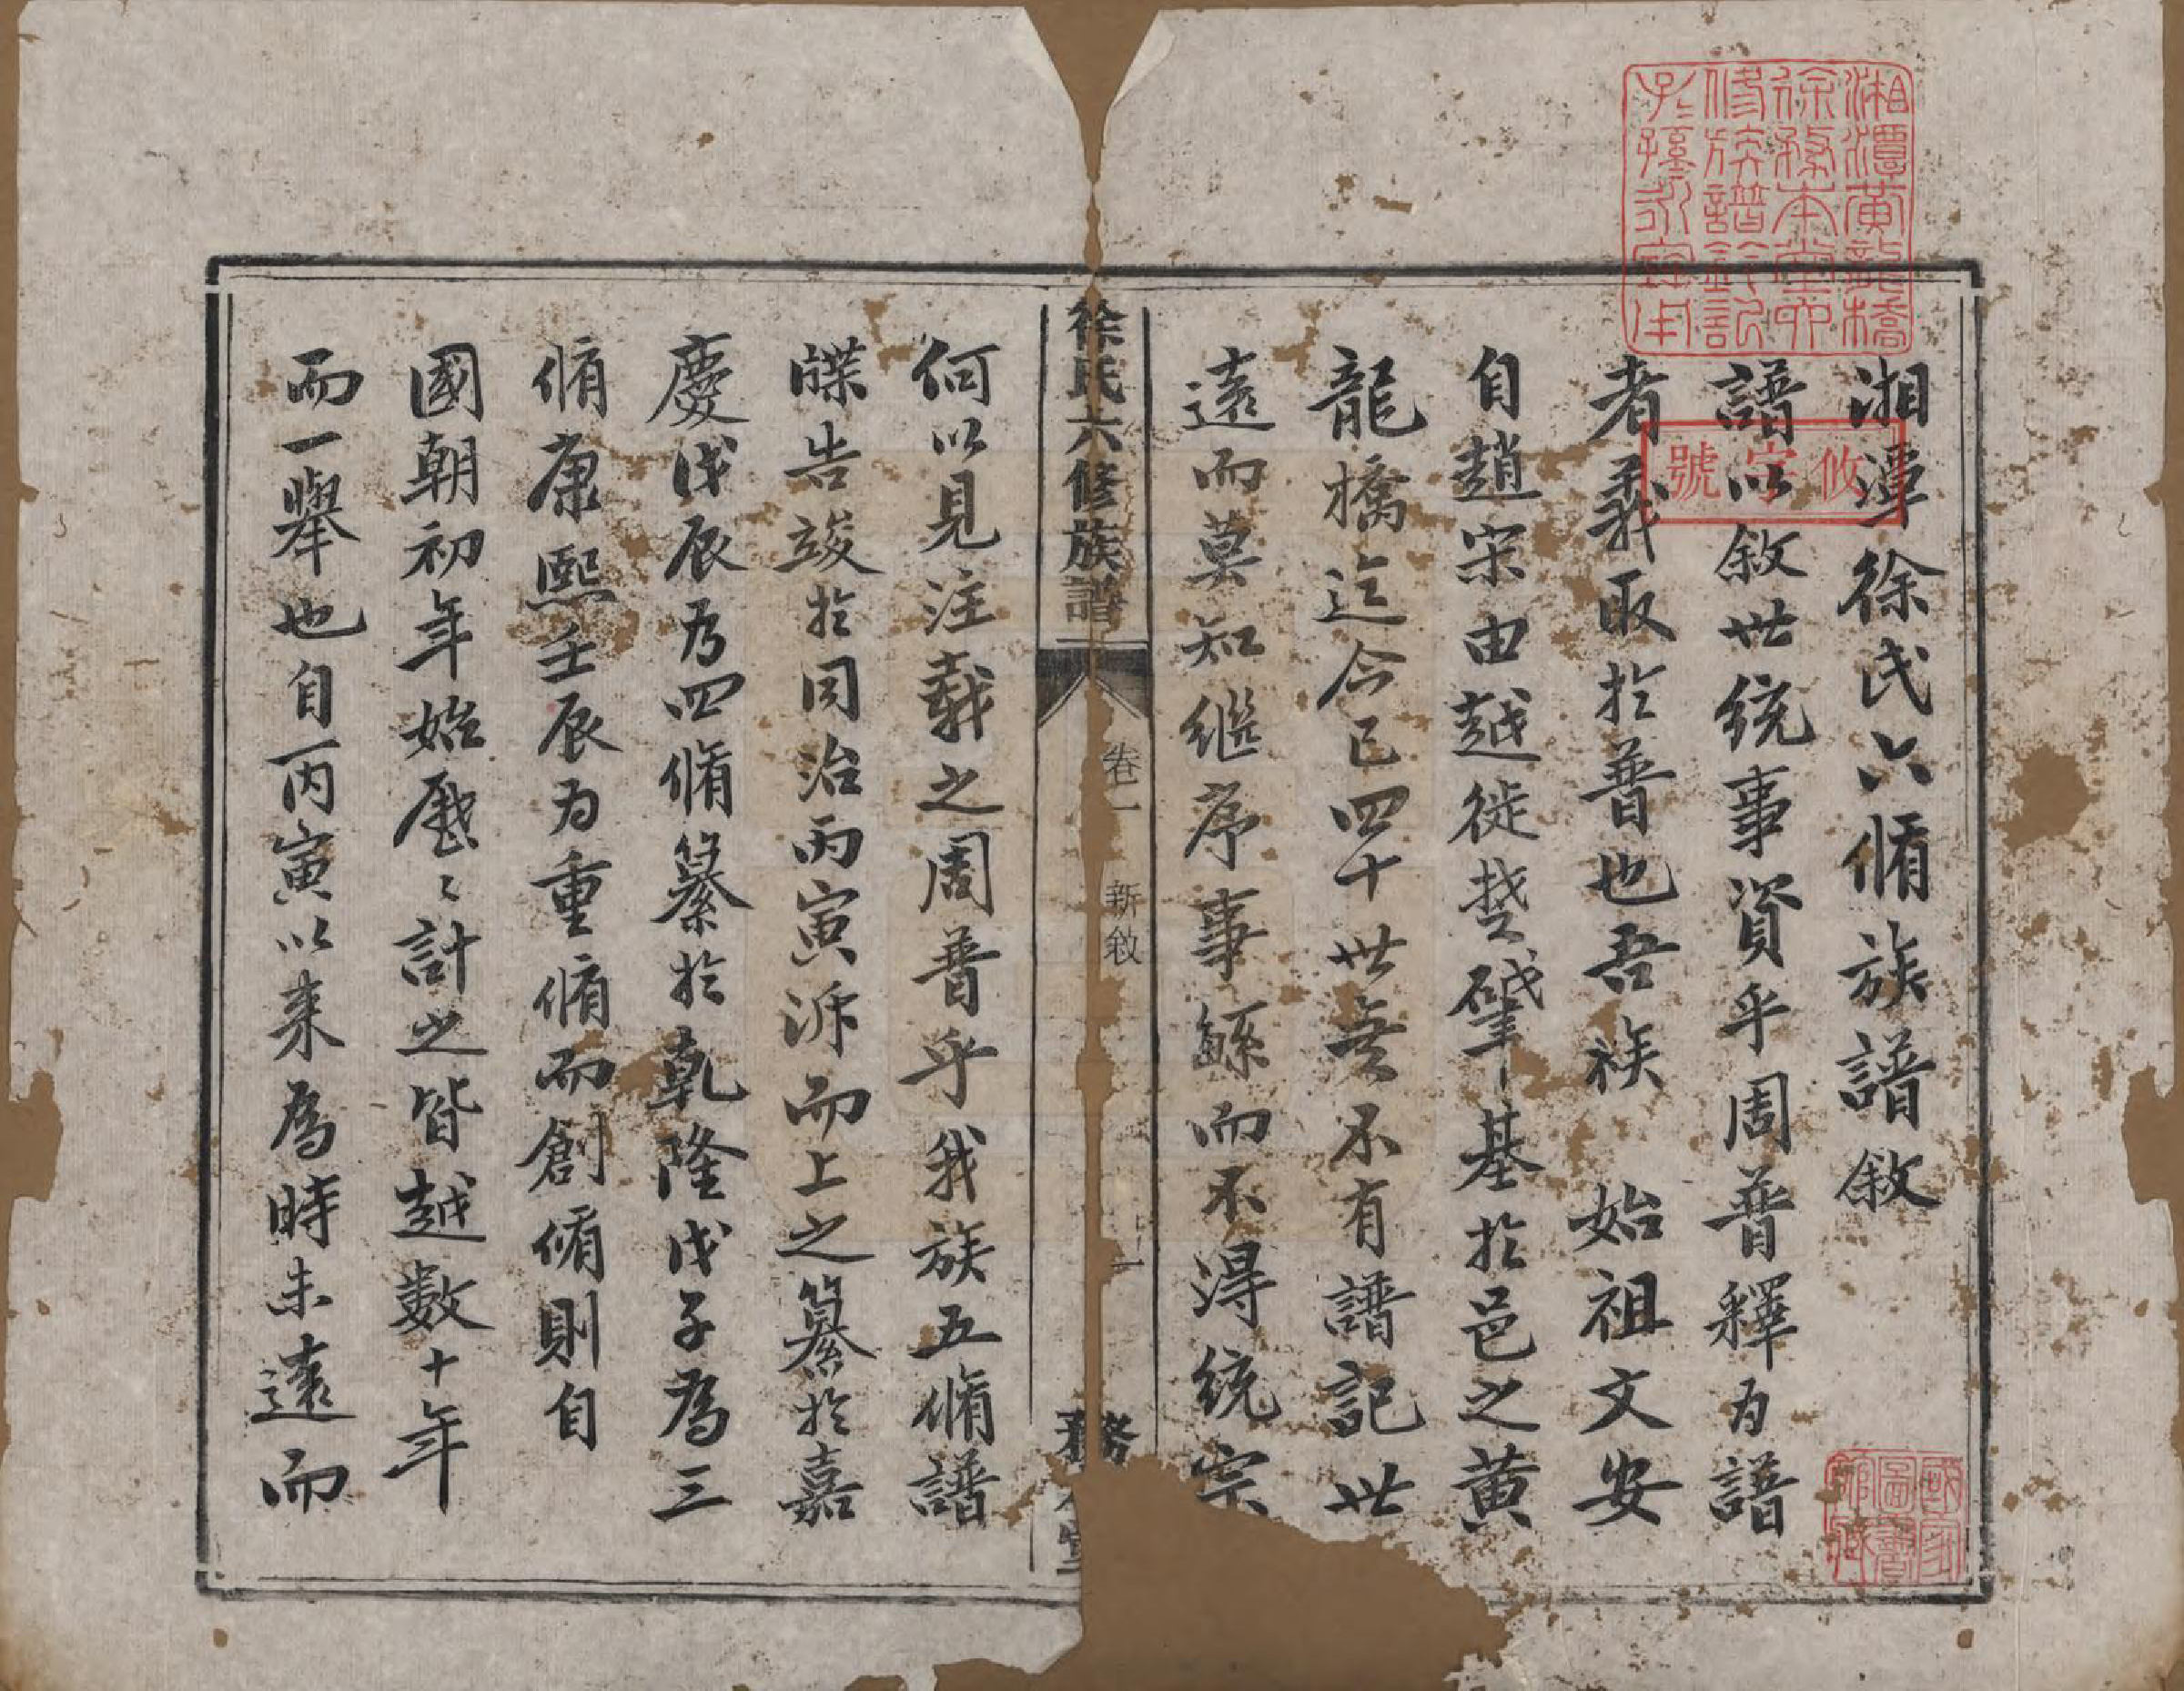 湘潭徐氏六脩族譜敘
譜以敘世統事資乎周普釋为譜
者義取於普也吾族 始祖文安
自趙宋由越徙楚肇基於邑之黄
龍橋迄今已四十世無不有譜記世
遠而莫知继序事繇而不得统宗
徐氏六修族譜
卷一
新敘
一
務本堂
何以見注載之周普乎我族五脩譜
牒告竣於同治丙寅泝而上之纂於嘉
慶戊辰为四脩纂於乾隆戊子為三
脩康熙壬辰为重脩而創脩則自
國朝初年始歷〻計之皆越數十年
而一舉也自丙寅以来為時未遠而
湘潭黄龍橋
徐務本堂六
修族譜鈐記
子孫永寶用
攸字號
國家
圖書
館藏